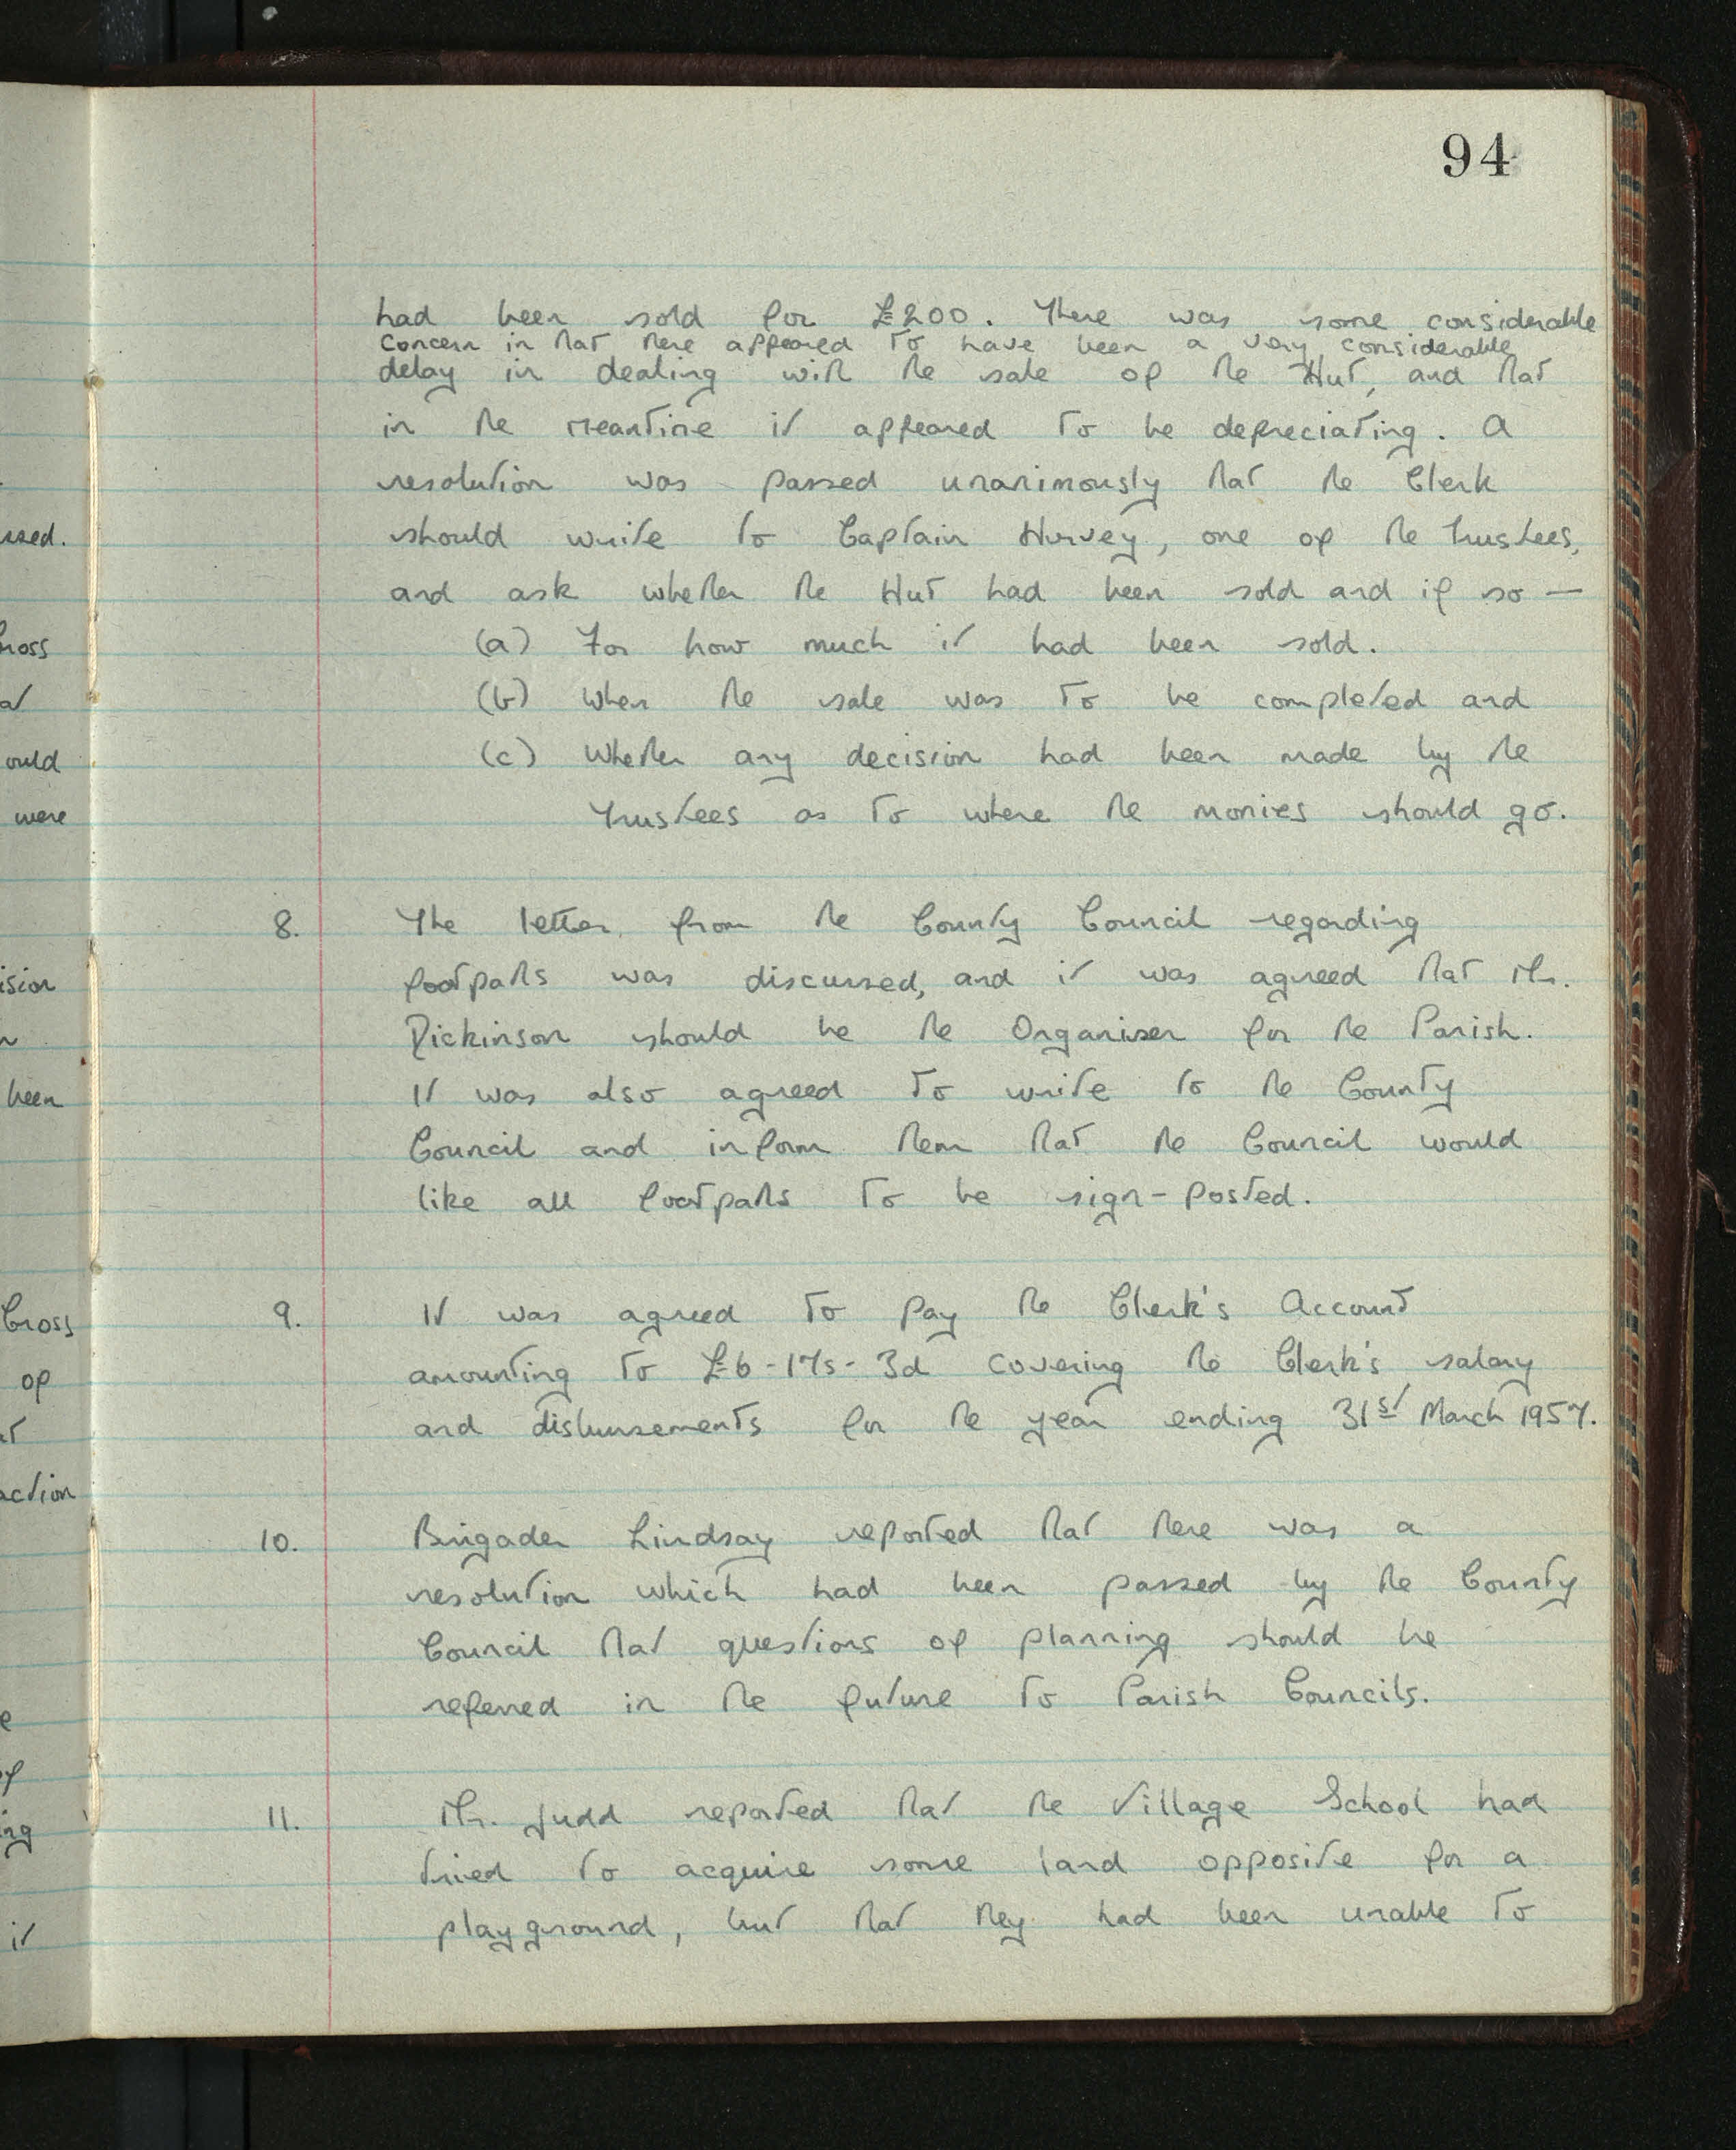 94
had been sold for £200. There was some considerable
concern in that there appeared to have been a very considerable
delay in dealing with the sale of the Hut, and that
in the meantime it appeared to be depreciating. A
resolution was passed unanimously that the Clerk
should write to Captain Hervey, one of the trustees,
and ask whether the Hut had been sold and if so —
(a) For how much it had been sold.
(b) When the sale was to be completed and
(c) Whether any decision had been made by the
Trustees as to where the monies should go.
8. The letter from the County Council regarding
footpaths was discussed, and it was agreed that Mr.
Dickinson should be the Organiser for the Parish.
It was also agreed to write to the County
Council and inform them that the Council would
like all footpaths to be sign-posted.
9. It was agreed to pay the Clerk's Account
amounting to £6-17s-3d covering the Clerk's salary
and disbursements for the year ending 31st March 1957.
10. Brigader Lindsay reported that there was a
resolution which had been passed by the County
Council that questions of planning should be
referred in the future to Parish Councils.
11. Mr. Judd reported that the Village School had
tried to acquire some land opposite for a
playground, but that they had been unable to